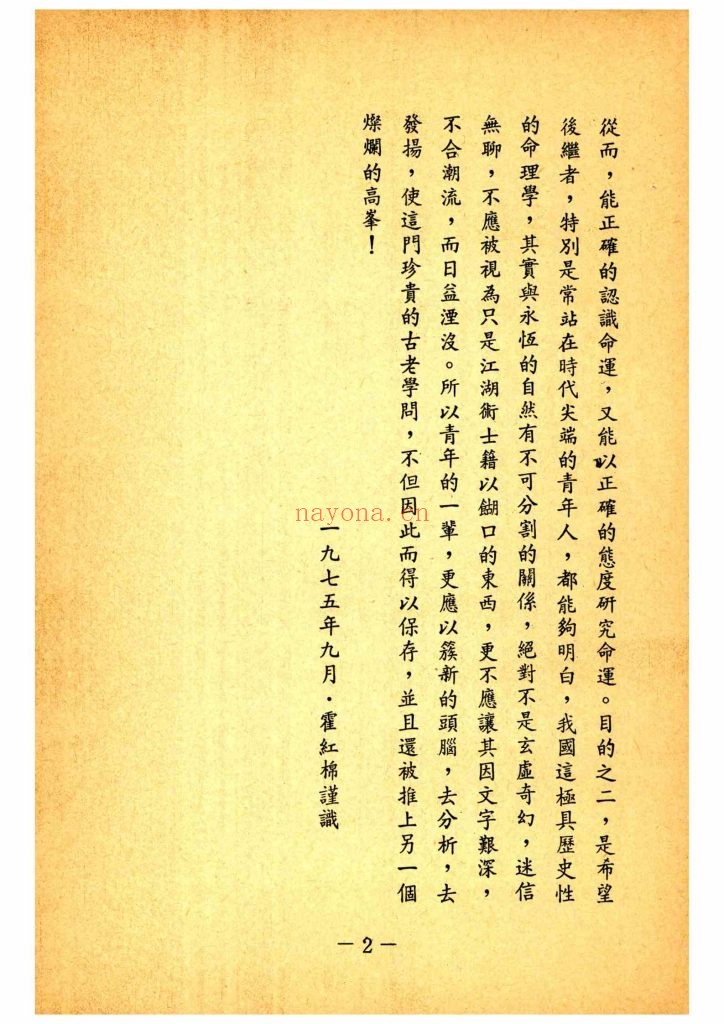 從而，能正確的認識命運，又能以正確的態度研究命運。目的之二，是希望
後繼者，特別是常站在時代尖端的青年人，都能夠明白，我國這極具歷史性
的命理學，其實與永恆的自然有不可分割的關係，絕對不是玄虛奇幻，迷信
無聊，不應被視為只是江湖術士藉以餬口的東西，更不應讓其因文字艱深，
不合潮流，而日益湮沒。所以青年的一輩，更應以簇新的頭腦，去分析，去
發揚，使這門珍貴的古老學問，不但因此而得以保存，並且還被推上另一個
燦爛的高峯！
一九七五年九月·霍紅棉謹識
nayona.cn
—2—